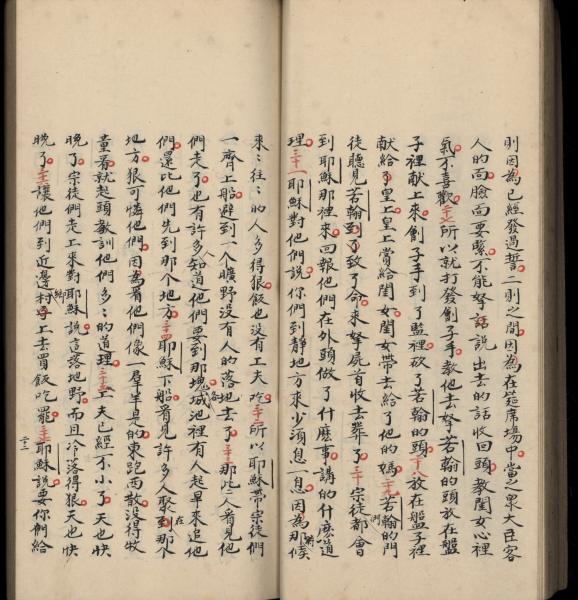 則因為已經發過誓二則之間因為在筵席場中當之眾大臣客
人的面臉面要緊不能孥話說出去的話收回頭教閨女心裡
氣不喜歡 二十七 所以就打發劊子手教他去孥若翰的頭放在盤
子裡献上來劊子手到了監裡砍了若翰的頭 二十八 放在盤子裡
献給了皇上皇上賞給閨女閨女帶去給了他的媽 二十九 若翰的門
徒聽見若翰到了致了命來孥屍首收去葬了 三十 宗徒都會
到耶穌那裡來回報他們在外頭做了什麽事講的什麽道
理 三十一 耶穌對他們說你們到靜地方來少須息一息因為那候
來〻往〻的人多得狠飯也没有工夫吃 三十二 所以耶穌帶宗徒們
一齊上船避到一个曠野没有人的落地去了 三十三 那些人看見他
們走了也有許多人知道他們要到那塊城池裡有人起早來追他
們還比他們先到那个地方 三十四 耶穌下船看見許多人聚到那个
地方狠可憐他們因為看他們像一羣羊是的東跑西散没得牧
童看就起頭教訓他們多〻的道理 三十五 工夫已經不小了天也快
晚了宗徒們走上來對耶穌說這落地野而且冷落得狠天也快
晚了 三十六 讓他們到近邊村上去買飯吃罷 三十七 耶穌說要你們給